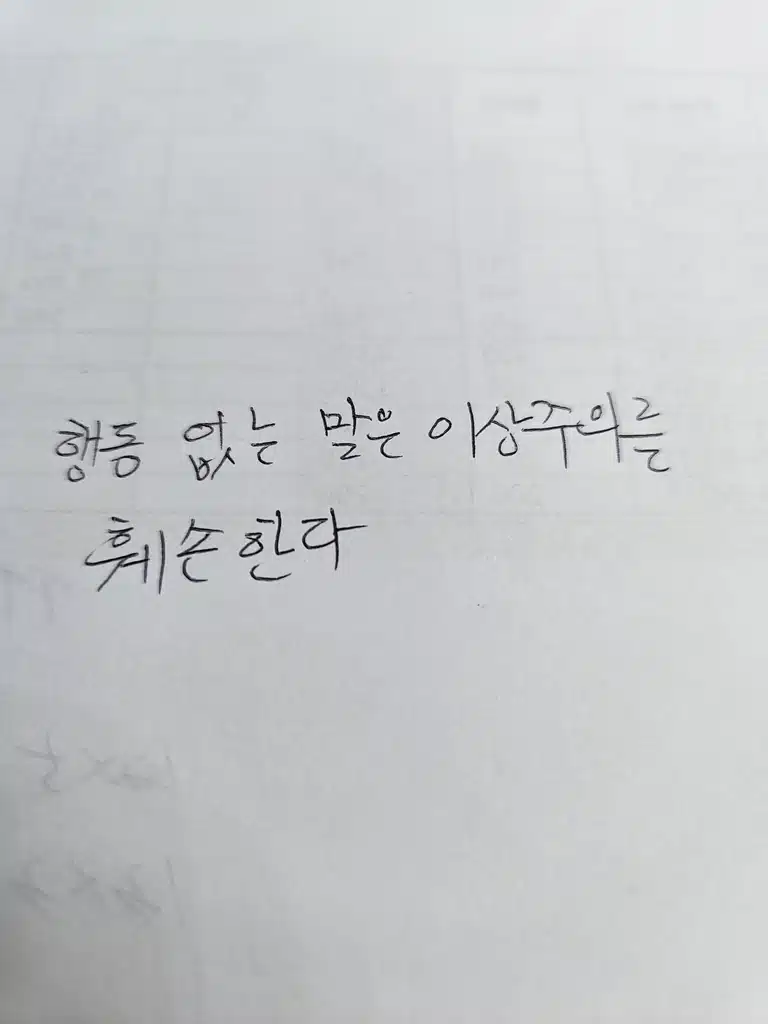 행동 없는 말은 이상주의를
훼손한다